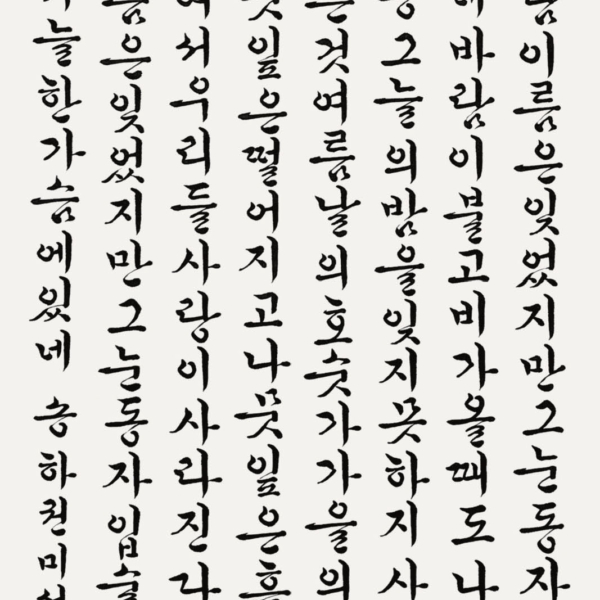 이름은잊었지만그눈동자
바람이불고비가올때도나
그늘의밤을잊지못하지사
것여름날의호숫가가을의
잎은떨어지고나뭇잎은흙
서우리들사랑이사라진다
은잊었지만그눈동자입술
늘한가슴에있네 송하권미